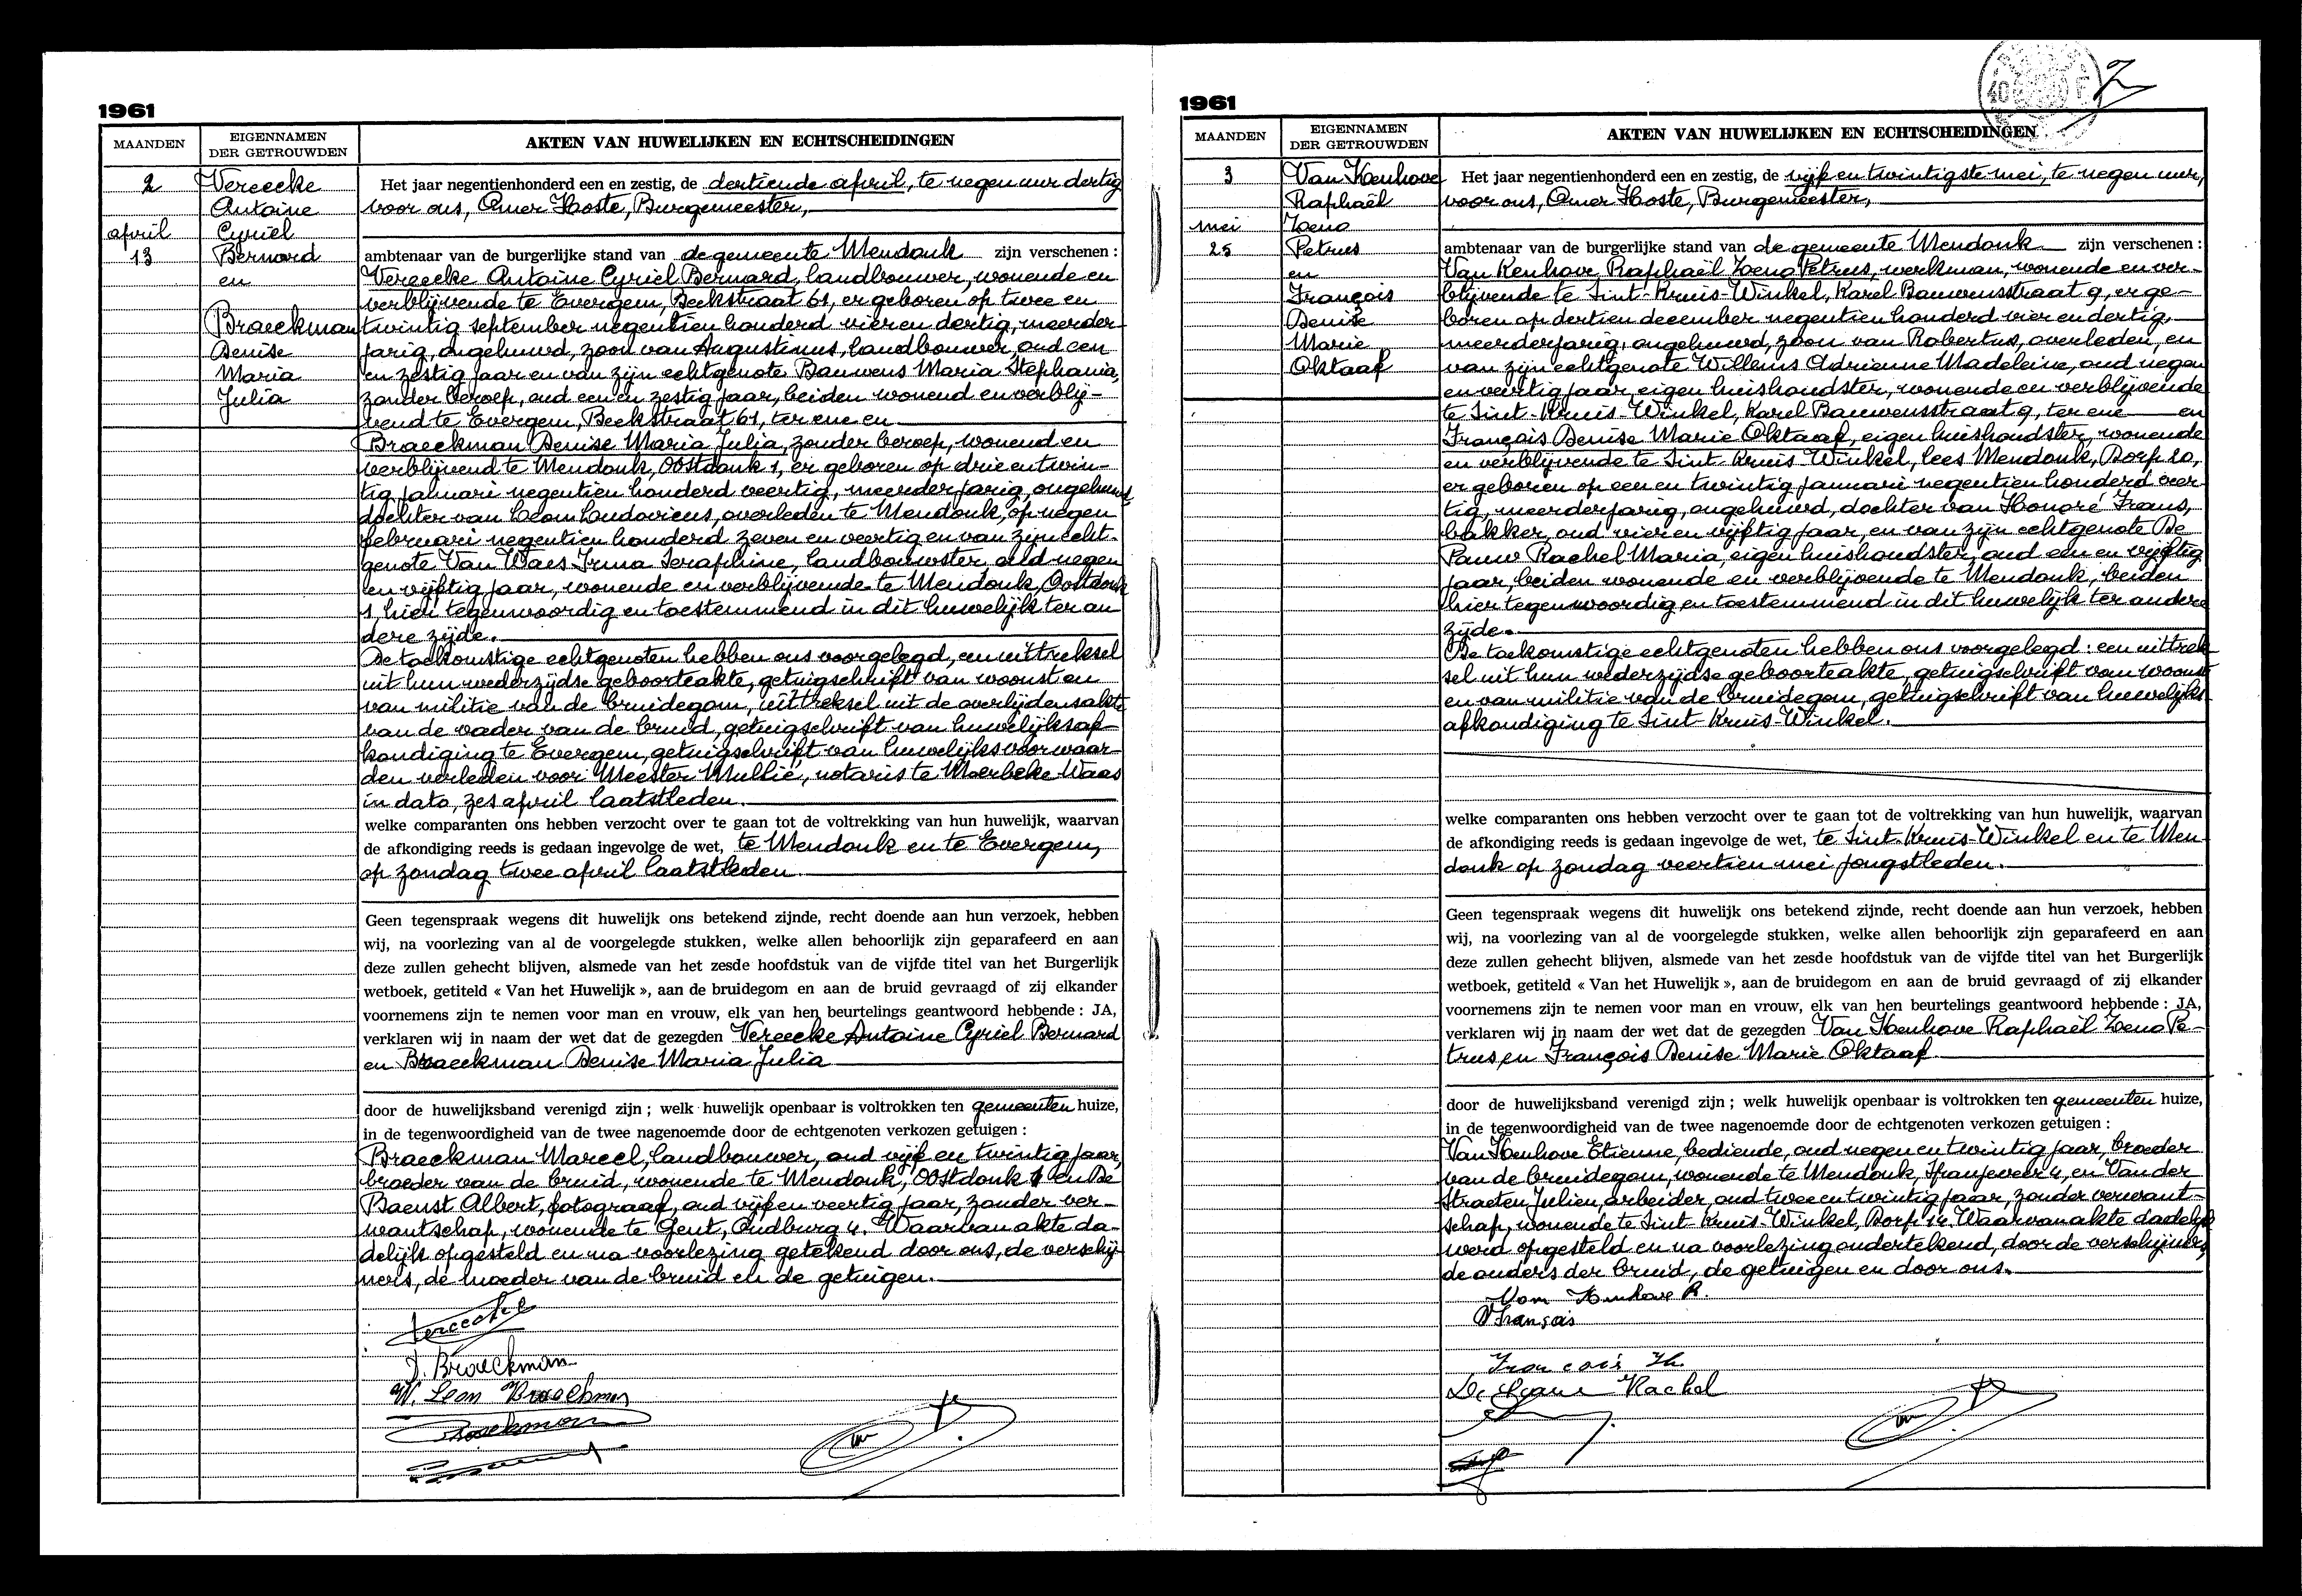 1961
MAANDEN
EIGENNAMEN
DER GETROUWDEN
AKTEN VAN HUWELIJKEN EN ECHTSCHEIDINGEN
2
april
13
Vereecke
Antoine
Cyriel
Bernard
en
Braeckman
Denise
Maria
Julia
Het jaar negentienhonderd een en zestig, de dertiende april, te negen uur dertig
voor ons, Omer Hoste, Burgemeester,
ambtenaar van de burgerlijke stand van de gemeente Mendonk zijn verschenen :
Vereecke Antoine Cyriel Bernard, landbouwer, wonende en
verblijvende te Evergem, Beekstraat 61, er geboren op twee en
twintig september negentien honderd vier en dertig, meerder-
jarig, ongehuwd, zoon van Augustinus, landbouwer, oud een
en zestig jaar en van zijn echtgenote Bauwens Maria Stephania,
zonder beroep, oud een en zestig jaar, beiden wonend en verblij-
vend te Evergem, Beekstraat 61, ter ene en
Braeckman Denise Maria Julia, zonder beroep, wonend en
verblijvend te Mendonk, Oostdonk 1, er geboren op drie en twin-
tig januari negentien honderd veertig, meerderjarig, ongehuwd,
dochter van Leon Ludovicus, overleden te Mendonk, op negen
februari negentien honderd zeven en veertig en van zijn echt-
genote Van Waes Irma Seraphine, landbouwster, oud negen
en vijftig jaar, wonende en verblijvende te Mendonk, Oostdonk
1, hier tegenwoordig en toestemmend in dit huwelijk ter an
dere zijde.
De toekomstige echtgenoten hebben ons voorgelegd, een uittreksel
uit hun wederzijdse geboorteakte, getuigschrift van woonst en
van militie van de bruidegom, uittreksel uit de overlijdensakte
van de vader van de bruid, getuigschrift van huwelijksaf-
kondiging te Evergem, getuigschrift van huwelijksvoorwaar-
den verleden voor Meester Mullie, notaris te Moerbeke Waas
in dato, zes april laatstleden.
welke comparanten ons hebben verzocht over te gaan tot de voltrekking van hun huwelijk, waarvan
de afkondiging reeds is gedaan ingevolge de wet, te Mendonk en te Evergem,
op zondag twee april laatstleden
Geen tegenspraak wegens dit huwelijk ons betekend zijnde, recht doende aan hun verzoek, hebben
wij, na voorlezing van al de voorgelegde stukken, welke allen behoorlijk zijn geparafeerd en aan
deze zullen gehecht blijven, alsmede van het zesde hoofdstuk van de vijfde titel van het Burgerlijk
wetboek, getiteld « Van het Huwelijk », aan de bruidegom en aan de bruid gevraagd of zij elkander
voornemens zijn te nemen voor man en vrouw, elk van hen beurtelings geantwoord hebbende : JA,
verklaren wij in naam der wet dat de gezegden Vereecke Antoine Cyriel Bernard
en Braeckman Denise Maria Julia
door de huwelijksband verenigd zijn ; welk huwelijk openbaar is voltrokken ten gemeenten huize,
in de tegenwoordigheid van de twee nagenoemde door de echtgenoten verkozen getuigen :
Braeckman Marcel, landbouwer, oud vijf en twintig jaar,
broeder van de bruid, wonende te Mendonk, Oostdonk 1 en De
Baenst Albert, fotograaf, oud vijf en veertig jaar, zonder ver-
wantschap, wonende te Gent, Oudburg 4. Waarvan akte da-
delijk opgesteld en na voorlezing getekend door ons, de verschij-
ners, de moeder van de bruid en de getuigen.
Vereecke
D. Braeckman
W. Leon Braeckman
Braeckman
1961
MAANDEN
EIGENNAMEN
DER GETROUWDEN
AKTEN VAN HUWELIJKEN EN ECHTSCHEIDINGEN
3
mei
25
Van Kenhove
Raphaël
Zeno
Petrus
en
François
Denise
Marie
Oktaaf
Het jaar negentienhonderd een en zestig, de vijf en twintigste mei, te negen uur,
voor ons, Omer Hoste, Burgemeester,
ambtenaar van de burgerlijke stand van de gemeente Mendonk zijn verschenen :
Van Kenhove Raphaël Zeno Petrus, werkman, wonende en ver-
blijvende te Sint-Kruis-Winkel, Karel Bauwensstraat 9, er ge-
boren op dertien december negentien honderd vier en dertig,
meerderjarig, ongehuwd, zoon van Robertus, overleden, en
van zijn echtgenote Willems Adrienne Madeleine, oud negen
en veertig jaar, eigen huishoudster, wonende en verblijvende
te Sint-Kruis-Winkel, Karel Bauwensstraat 9, ter ene en
François Denise Marie Oktaaf, eigen huishoudster, wonende
en verblijvende te Sint-Kruis-Winkel, lees Mendonk, Dorp 20,
er geboren op een en twintig januari negentien honderd veer-
tig, meerderjarig, ongehuwd, dochter van Honoré Frans,
bakker, oud vier en vijftig jaar, en van zijn echtgenote De
Pauw Rachel Maria, eigen huishoudster, oud een en vijftig
jaar, beiden wonende en verblijvende te Mendonk, beiden
hier tegenwoordig en toestemmend in dit huwelijk ter andere
zijde.
De toekomstige echtgenoten hebben ons voorgelegd : een uittrek-
sel uit hun wederzijdse geboorteakte, getuigschrift van woonst
en van militie van de bruidegom, getuigschrift van huwelijks-
afkondiging te Sint-Kruis-Winkel.
welke comparanten ons hebben verzocht over te gaan tot de voltrekking van hun huwelijk, waarvan
de afkondiging reeds is gedaan ingevolge de wet, te Sint-Kruis-Winkel en te Men-
donk op zondag veertien mei jongstleden.
Geen tegenspraak wegens dit huwelijk ons betekend zijnde, recht doende aan hun verzoek, hebben
wij, na voorlezing van al de voorgelegde stukken, welke allen behoorlijk zijn geparafeerd en aan
deze zullen gehecht blijven, alsmede van het zesde hoofdstuk van de vijfde titel van het Burgerlijk
wetboek, getiteld « Van het Huwelijk », aan de bruidegom en aan de bruid gevraagd of zij elkander
voornemens zijn te nemen voor man en vrouw, elk van hen beurtelings geantwoord hebbende : JA,
verklaren wij in naam der wet dat de gezegden Van Kenhove Raphaël Zeno Pe-
trus en François Denise Marie Oktaaf
door de huwelijksband verenigd zijn ; welk huwelijk openbaar is voltrokken ten gemeenten huize,
in de tegenwoordigheid van de twee nagenoemde door de echtgenoten verkozen getuigen :
Van Kenhove Etienne, bediende, oud negen en twintig jaar, broeder
van de bruidegom, wonende te Mendonk, Spanjeveer 4, en Van der
Straeten Julien, arbeider, oud twee en twintig jaar, zonder verwant-
schap, wonende te Sint-Kruis-Winkel, Dorp 14. Waarvan akte dadelijk
werd opgesteld en na voorlezing ondertekend, door de verschijners,
de ouders der bruid, de getuigen en door ons.
Van Kenhove R.
D François
François H.
De Pauw Rachel